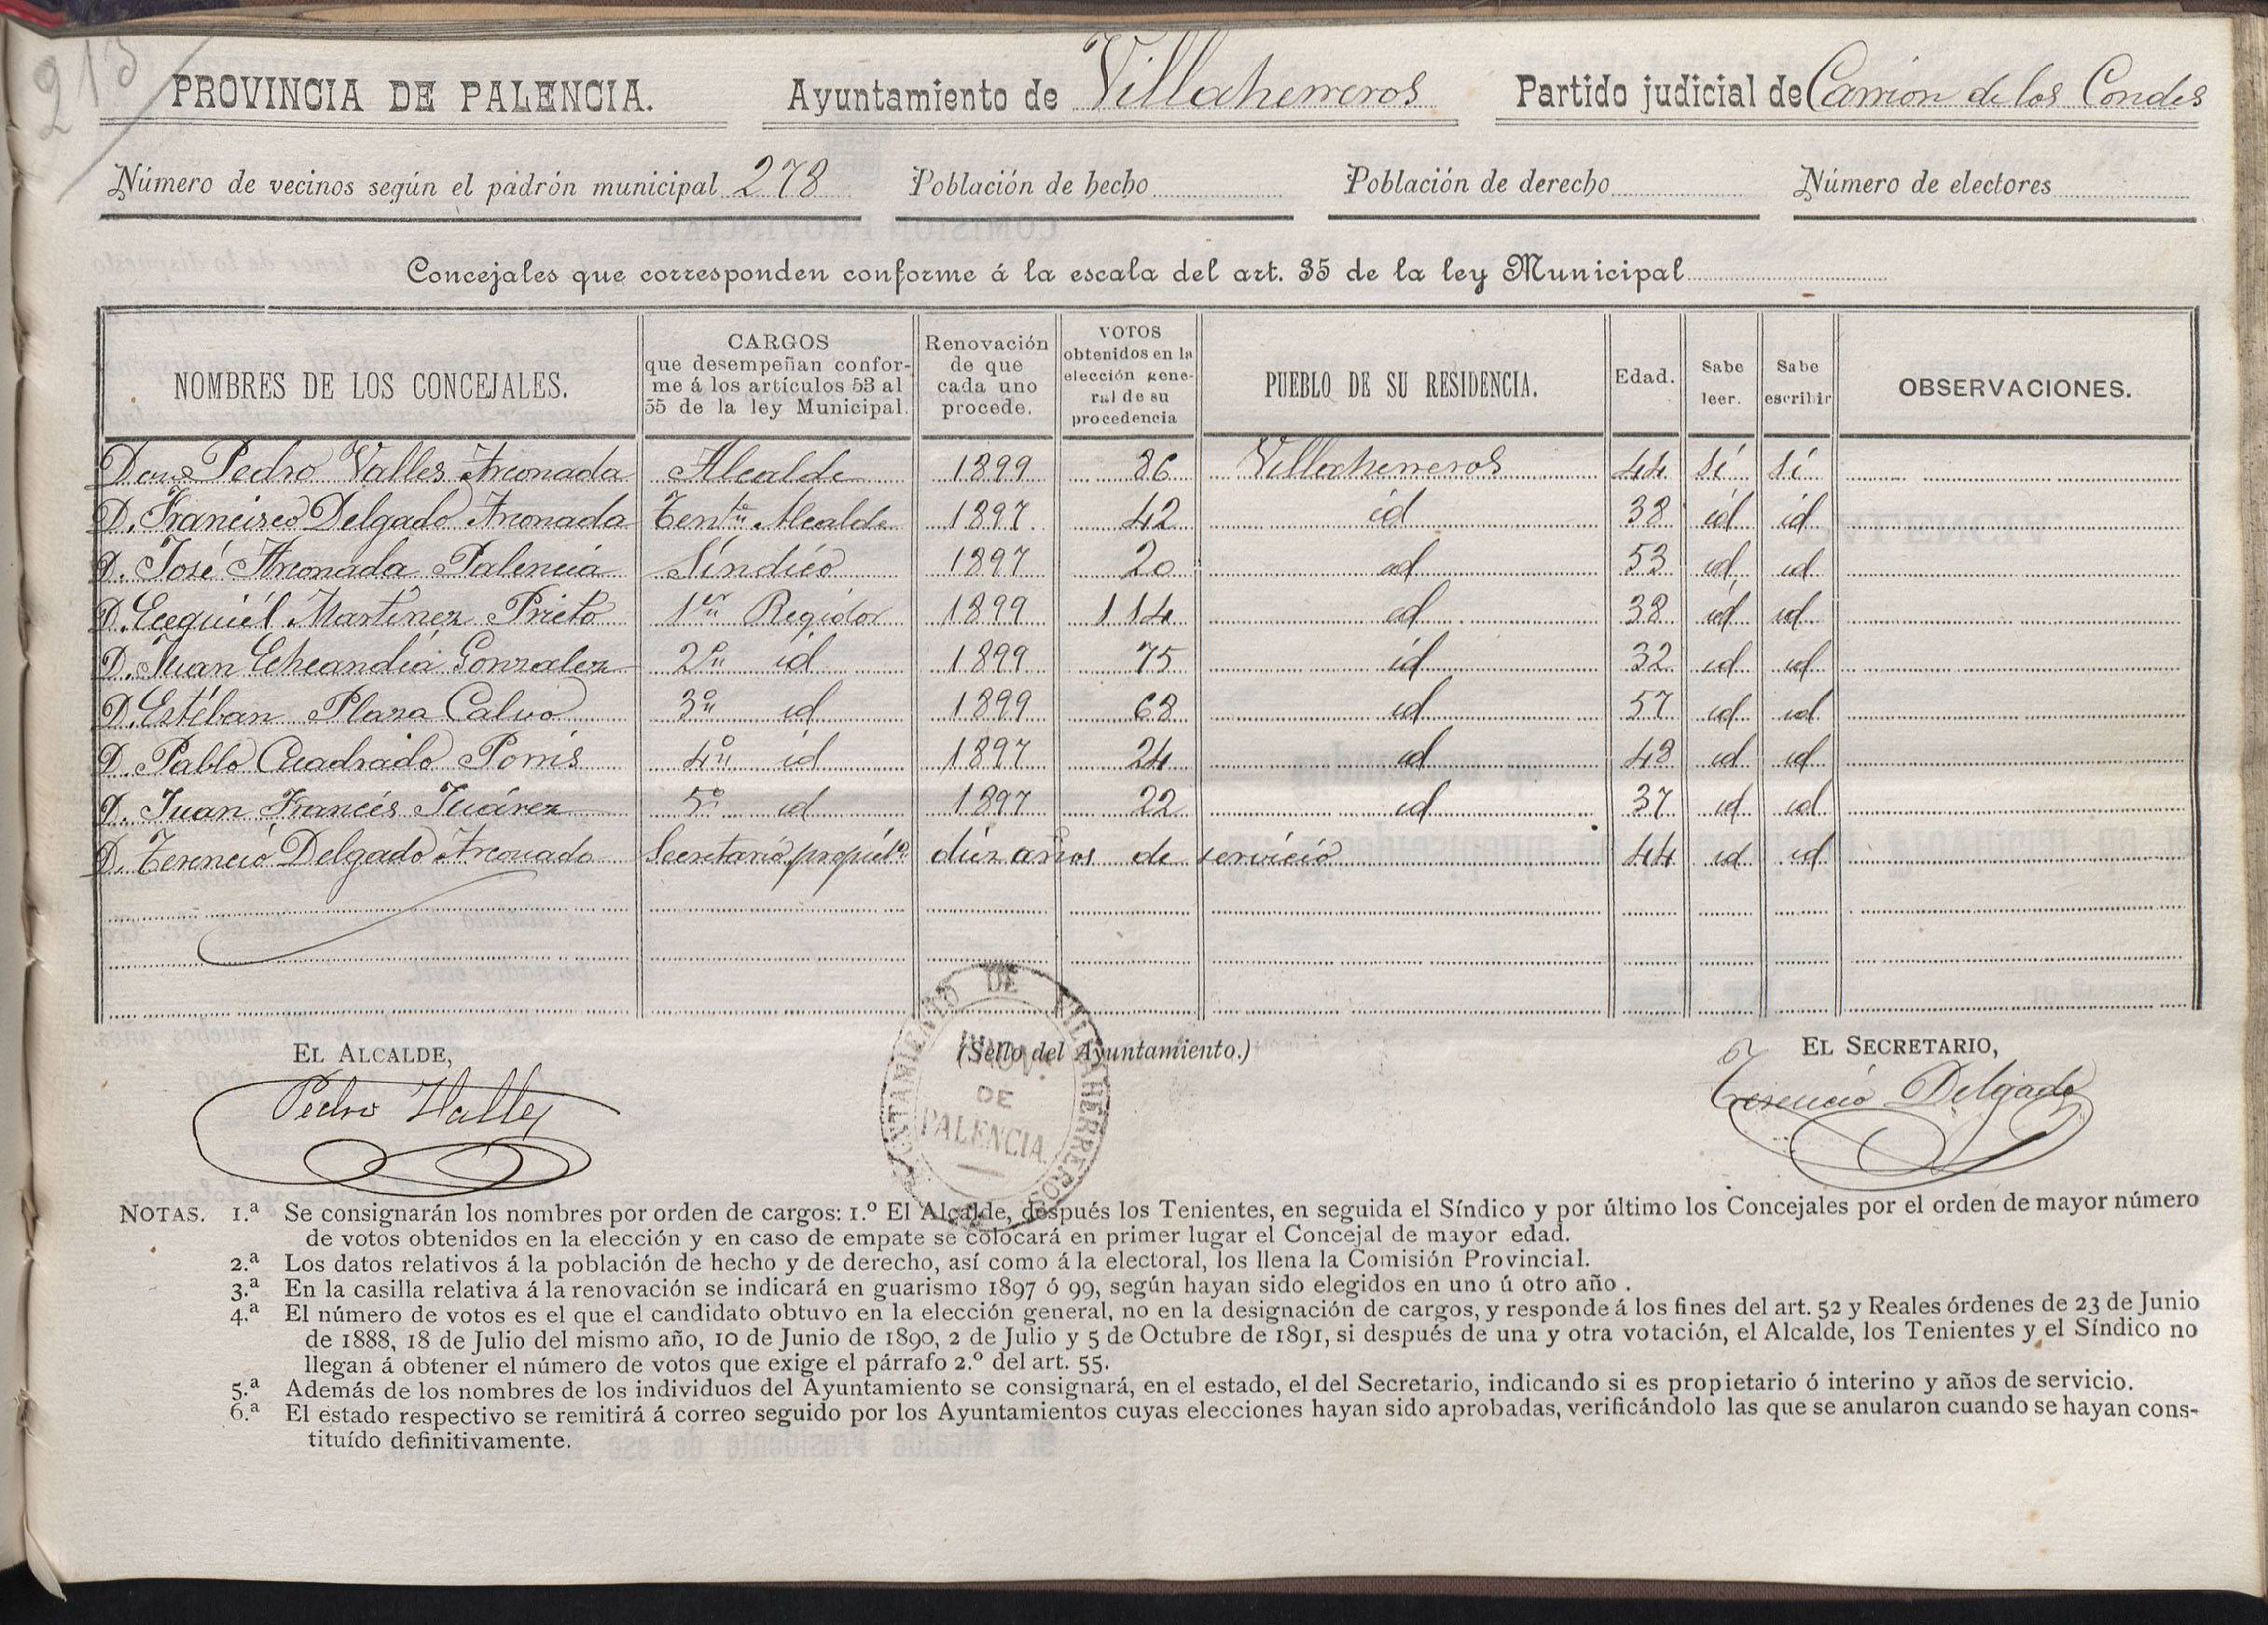 213
PROVINCIA DE PALENCIA. Ayuntamiento de Villaherreros Partido judicial de Carrion de los Condes
Número de vecinos según el padrón municipal 278 Población de hecho Población de derecho Número de electores
Concejales que corresponden conforme á la escala del art. 35 de la ley Municipal
NOMBRES DE LOS CONCEJALES. CARGOS que desempeñan conforme á los artículos 53 al 55 de la ley Municipal. Renovación de que cada uno procede. VOTOS obtenidos en la elección general de su procedencia PUEBLO DE SU RESIDENCIA. Edad. Sabe leer. Sabe escribir OBSERVACIONES.
Don Pedro Valles Arconada Alcalde 1899 86 Villaherreros 44 sí sí
D. Francisco Delgado Arconada Tente. Alcalde 1897 42 id 38 id id
D. José Arconada Palencia Síndico 1897 20 id 53 id id
D. Ecequiél Martinez Prieto 1er Regidor 1899 114 id 38 id id
D. Juan Echeandía Gonzalez 2º id 1899 75 id 32 id id
D. Estéban Plaza Calvo 3º id 1899 68 id 57 id id
D. Pablo Cuadrado Porris 4º id 1897 24 id 48 id id
D. Juan Francés Juárez 5º id 1897 22 id 37 id id
D. Terencio Delgado Arconada Secretario propietº diez años de servicio 44 id id
EL ALCALDE, (Sello del Ayuntamiento.) EL SECRETARIO,
Pedro Valles Terencio Delgado
AYUNTAMIENTO DE VILLAHERREROS
PROV. DE PALENCIA.
NOTAS. 1.ª Se consignarán los nombres por orden de cargos: 1.º El Alcalde, después los Tenientes, en seguida el Síndico y por último los Concejales por el orden de mayor número
de votos obtenidos en la elección y en caso de empate se colocará en primer lugar el Concejal de mayor edad.
2.ª Los datos relativos á la población de hecho y de derecho, así como á la electoral, los llena la Comisión Provincial.
3.ª En la casilla relativa á la renovación se indicará en guarismo 1897 ó 99, según hayan sido elegidos en uno ú otro año .
4.ª El número de votos es el que el candidato obtuvo en la elección general, no en la designación de cargos, y responde á los fines del art. 52 y Reales órdenes de 23 de Junio
de 1888, 18 de Julio del mismo año, 10 de Junio de 1890, 2 de Julio y 5 de Octubre de 1891, si después de una y otra votación, el Alcalde, los Tenientes y el Síndico no
llegan á obtener el número de votos que exige el párrafo 2.º del art. 55.
5.ª Además de los nombres de los individuos del Ayuntamiento se consignará, en el estado, el del Secretario, indicando si es propietario ó interino y años de servicio.
6.ª El estado respectivo se remitirá á correo seguido por los Ayuntamientos cuyas elecciones hayan sido aprobadas, verificándolo las que se anularon cuando se hayan cons-
tituído definitivamente.